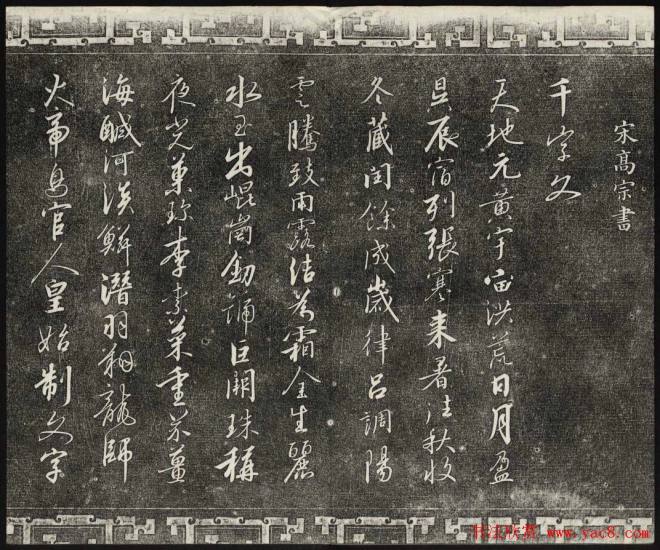 宋髙宗書
千字文
天地元黃宇宙洪荒日月盈
昃辰宿列張寒来暑往秋收
冬藏閏餘成歲律呂調陽
雲騰致雨露結為霜金生麗
水玉出崐崗劒號巨闕珠稱
夜光菓珍李柰菜重芥薑
海鹹河淡鱗潛羽翔龍師
火帝鳥官人皇始制文字
书法欣赏 www.yac8.com